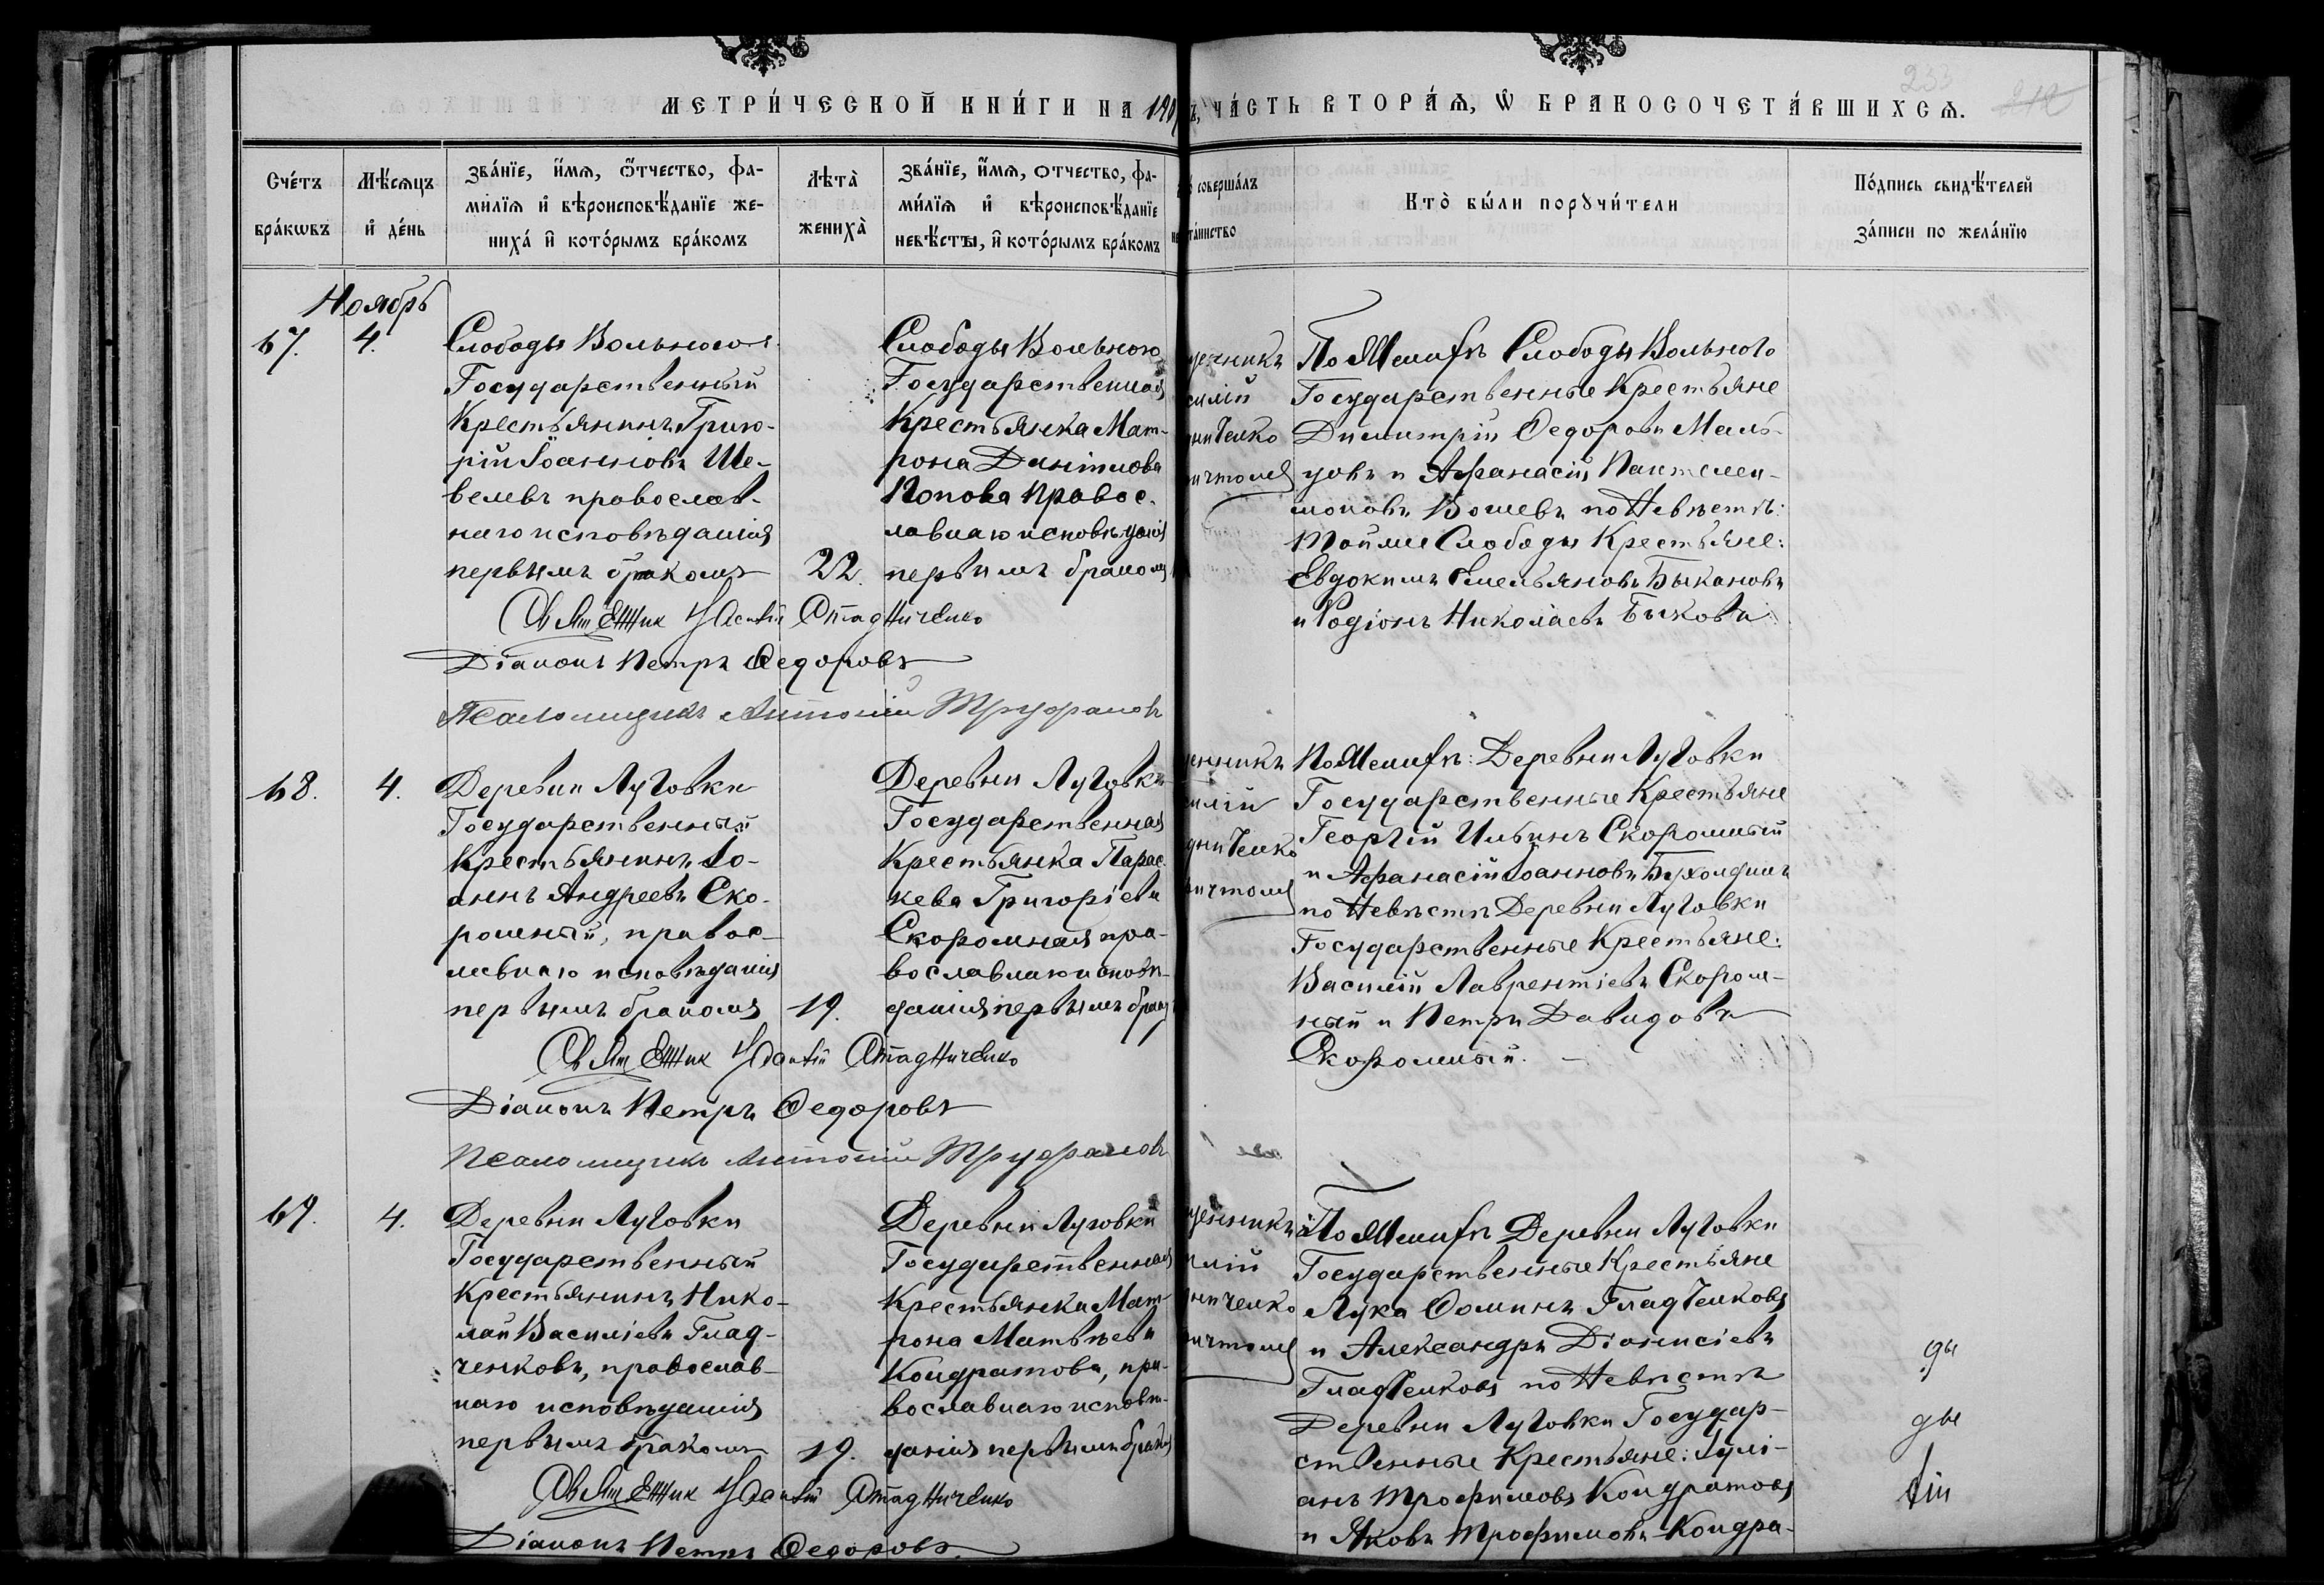 233
212
МЕТРИ́ЧЕСКОЙ КНИ́ГИ НА 190
Ъ, ЧА́СТЬ ВТОРА́Ѧ, Ѡ БРАКОСОЧЕТА́ВШИХСѦ.
Сче́тъ
бра́кѡвъ
Мѣ́сѧцъ
и҆ де́нь
Зва́нїе, и҆́мѧ, ѻ҆́тчество, фа-
ми́лїѧ и҆ вѣроисповѣ́данїе же-
ниха́ и҆ кото́рымъ бра́комъ
Лѣта̀
жениха̀
Зва́нїе, и҆́мѧ, отчество, фа-
ми́лїѧ и҆ вѣроисповѣ́данїе
невѣ́сты, и҆ кото́рымъ бра́комъ
соверша́лъ
та́инство
Кто̀ бы́ли порꙋчи́тели
По́дпись свидѣ́телей
за́писи по жела́нїю
Ноябрь
67.
4.
Слободы Вольного
Государственный
Крестьянинъ Григо-
рій Іоанновъ Ше-
велевъ православ-
наго исповѣданія
первымъ бракомъ
22.
Слободы Вольного
Государственная
Крестьянка Мат-
рона Даніилова
Попова Правос-
лавнаго исповѣданія
первымъ бракомъ
щенникъ
силій
дниченко
ичтомъ
По Женихѣ Слободы Вольного
Государственные Крестьяне
Димитрій Ѳедоровъ Маль-
цовъ и Аѳанасій Пантелеи-
моновъ Вошевъ по Невѣстѣ:
Тойже Слободы Крестьяне:
Евдокимъ Емельяновъ Быкановъ
и Родіонъ Николаевъ Быковъ
Священник Василій Стадниченко
Діаконъ Петръ Ѳедоровъ
Псаломщикъ Антоній Труфановъ
68.
4.
Деревни Луговки
Государственный
Крестьянинъ Іо-
аннъ Андреевъ Ско-
ромный, правос-
лавнаго исповѣданія
первымъ бракомъ
19.
Деревни Луговки
Государственная
Крестьянка Парас-
кева Григоріева
Скоромная пра-
вославнаго исповѣ-
данія первымъ брак
щенникъ
силій
дниченко
ичтомъ
По Женихѣ: Деревни Луговки
Государственные Крестьяне
Георгій Ильинъ Скоромный
и Аѳанасій Іоанновъ
по Невѣстѣ Деревни Луговки
Государственные Крестьяне:
Василій Лаврентіевъ Скором-
ный и Петръ Давидовъ
Скоромный.
Священник Василій Стадниченко
Діаконъ Петръ Ѳедоровъ
Псаломщикъ Антоній Труфановъ
69.
4.
Деревни Луговки
Государственный
Крестьянинъ Нико-
лай Василіевъ Глад-
ченковъ, православ-
наго исповѣданія
первымъ бракомъ
19.
Деревни Луговки
Государственная
Крестьянка Мат-
рона Матвѣева
Кондратова, пра-
вославнаго исповѣ-
данія первымъ бракомъ
щенникъ
силій
дниченко
ичтомъ
По Женихѣ Деревни Луговки
Государственные Крестьяне
Лука Ѳоминъ Гладченковъ
и Александръ Діонисіевъ
Гладченковъ по Невѣстѣ
Деревни Луговки Государ-
ственные Крестьяне: Іулі-
анъ Трофимовъ Кондратовъ
и Яковъ Трофимовъ Кондра-
Священник Василій Стадниченко
Діаконъ Петръ Ѳедоровъ.